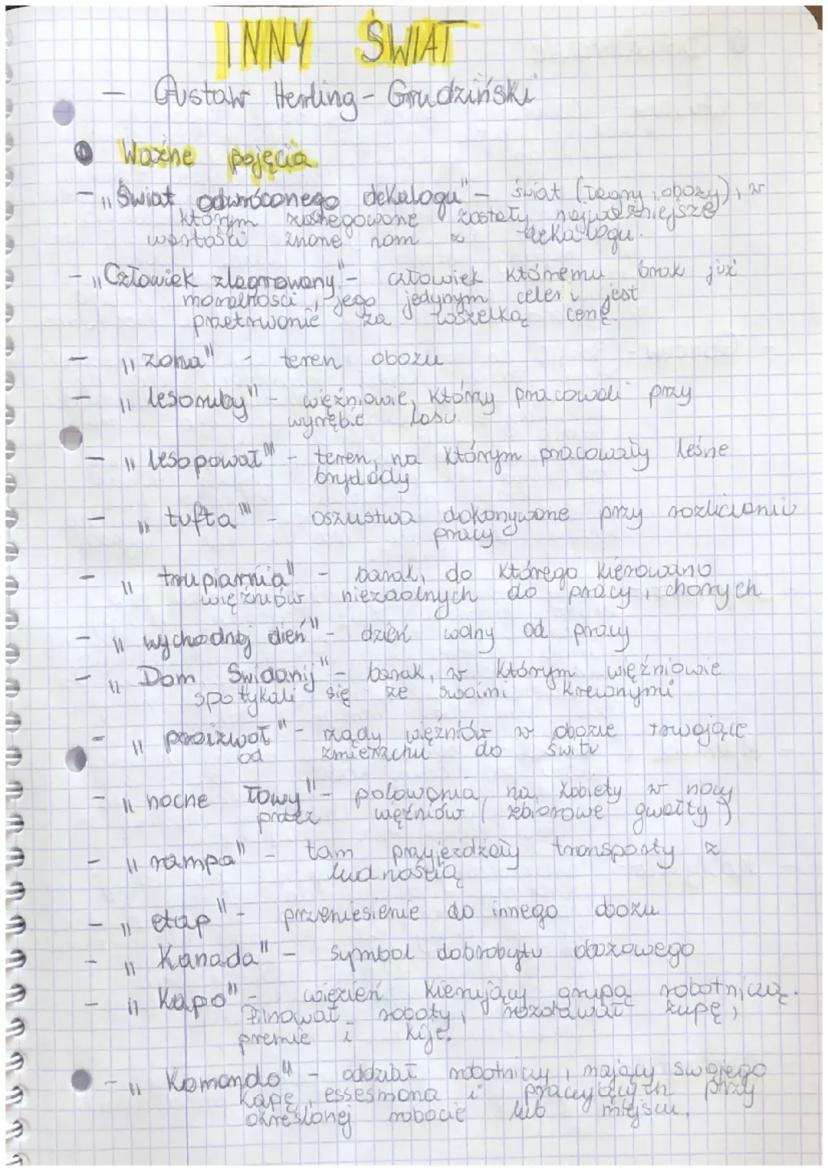 INNY ŚWIAT
- Gustaw Herling-Grudziński
Ważne pojęcia
- "Świat odwróconego dekalogu" - świat (łagry, obozy), w
którym zanegowane zostały najważniejsze
wartości znane nam z dekalogu.
- "Człowiek zlagrowany" - człowiek któremu brak już
moralności, jego jedynym celem jest
przetrwanie za wszelką cenę
- "zona" - teren obozu
- "lesoruby" - więźniowie, którzy pracowali przy
wyrębie lasu
- "lesopował" - teren, na którym pracowały leśne
brygady
- "tufta" - oszustwa dokonywane przy rozliczaniu
pracy
- "trupiarnia" - barak, do którego kierowano
więźniów niezdolnych do pracy, chorych
- "wychodnoj dień" - dzień wolny od pracy
- "Dom Swidanij" - barak, w którym więźniowie
spotykali się ze swoimi krewnymi
- "proizwoł" - rządy więźniów w obozie trwające
od zmierzchu do świtu
- "nocne łowy" - polowania, na kobiety w nocy
przez więźniów (zbiorowe gwałty)
- "rampa" - tam przyjeżdżały transporty z
ludnością
- "etap" - przeniesienie do innego obozu
- "Kanada" - symbol dobrobytu obozowego
- "Kapo" - więzień kierujący grupą robotniczą.
Pilnował roboty, rozdawał zupę,
premie i kije.
- "Komando" - oddział robotniczy, mający swojego
kapę, essesmana i pracujących przy
określonej robocie lub miejscu.